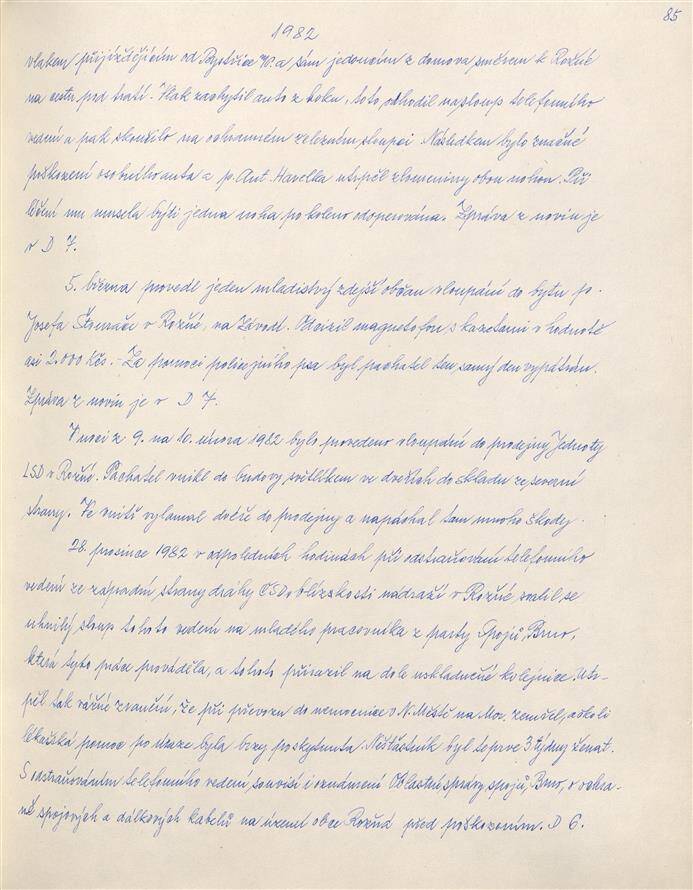 85
1982
vlakem přijíždějícím od Bystřice n/P. a sám jedoucím z domova směrem k Rožné
na cestu pod tratí. Vlak zachytil auto z boku, toto odhodil na sloup telefonního
vedení a pak skončilo na ochranném železném sloupci. Následkem bylo značné
poškození osobního auta a p. Ant. Havelka utrpěl zlomeniny obou nohou. Při
léčení mu musela býti jedna noha po koleno odoperována. Zpráva z novin je
v D 7.
5. března provedl jeden mladistvý zdejší občan vloupání do bytu p.
Josefa v Rožné, na Závodí. Odcizil magnetofon s kazetami v hodnotě
asi 2.000 Kčs. - Za pomoci policejního psa byl pachatel ten samý den vypátrán.
Zpráva z novin je v D 7.
V noci z 9. na 10. února 1982 bylo provedeno vloupání do prodejny Jednoty
LSD v Rožné. Pachatel vnikl do budovy světlíkem ve dveřích do skladu ze severní
strany. Ve vnitř vylámal dveře do prodejny a napáchal tam mnoho škody.
28. prosince 1982 v odpoledních hodinách při odstraňování telefonního
vedení ze západní strany dráhy ČSD v blízkosti nádraží v Rožné, svalil se
uhnilý sloup tohoto vedení na mladého pracovníka z party Spojů, Brno,
která tyto práce prováděla, a tohoto přirazil na dole uskladněné kolejnice. Utr-
pěl tak vážné zranění, že při převozu do nemocnice v N. Městě na Mor. zemřel, ačkoli
lékařská pomoc po úraze byla brzy poskytnuta. Nešťastník byl teprve 3 týdny ženat.
S odstraňováním telefonního vedení, souvisí i oznámení Oblastní správy spojů, Brno, o ochra-
ně spojových a dálkových kabelů na území obce Rožná před poškozením. D 6.